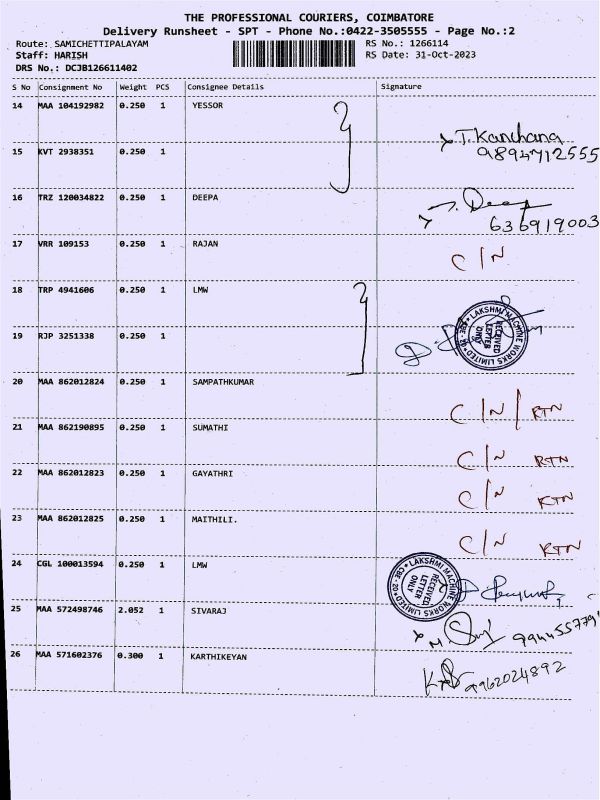 THE PROFESSIONAL COURIERS, COIMBATORE
Delivery Runsheet - SPT - Phone No.:0422-3505555 - Page No.:2
Route: SAMICHETTIPALAYAM RS No.: 1266114
Staff: HARISH RS Date: 31-Oct-2023
DRS No.: DCJB126611402
S No Consignment No Weight PCS Consignee Details Signature
14 MAA 104192982 0.250 1 YESSOR
T. Kanchana
15 KVT 2938351 0.250 1 9894712555
16 TRZ 120034822 0.250 1 DEEPA
636919003
17 VRR 109153 0.250 1 RAJAN C/N
18 TRP 4941606 0.250 1 LMW
LAKSHMI MACHINE WORKS LIMITED * CBE-20 *
RECEIVED
LETTER
ONLY
19 RJP 3251338 0.250 1
20 MAA 862012824 0.250 1 SAMPATHKUMAR C/N/RTN
21 MAA 862190895 0.250 1 SUMATHI C/N RTN
22 MAA 862012823 0.250 1 GAYATHRI C/N RTN
23 MAA 862012825 0.250 1 MAITHILI. C/N RTN
24 CGL 100013594 0.250 1 LMW
LAKSHMI MACHINE WORKS LIMITED * CBE-20 *
RECEIVED
LETTER
ONLY
25 MAA 572498746 2.052 1 SIVARAJ
26 MAA 571602376 0.300 1 KARTHIKEYAN 9962024892